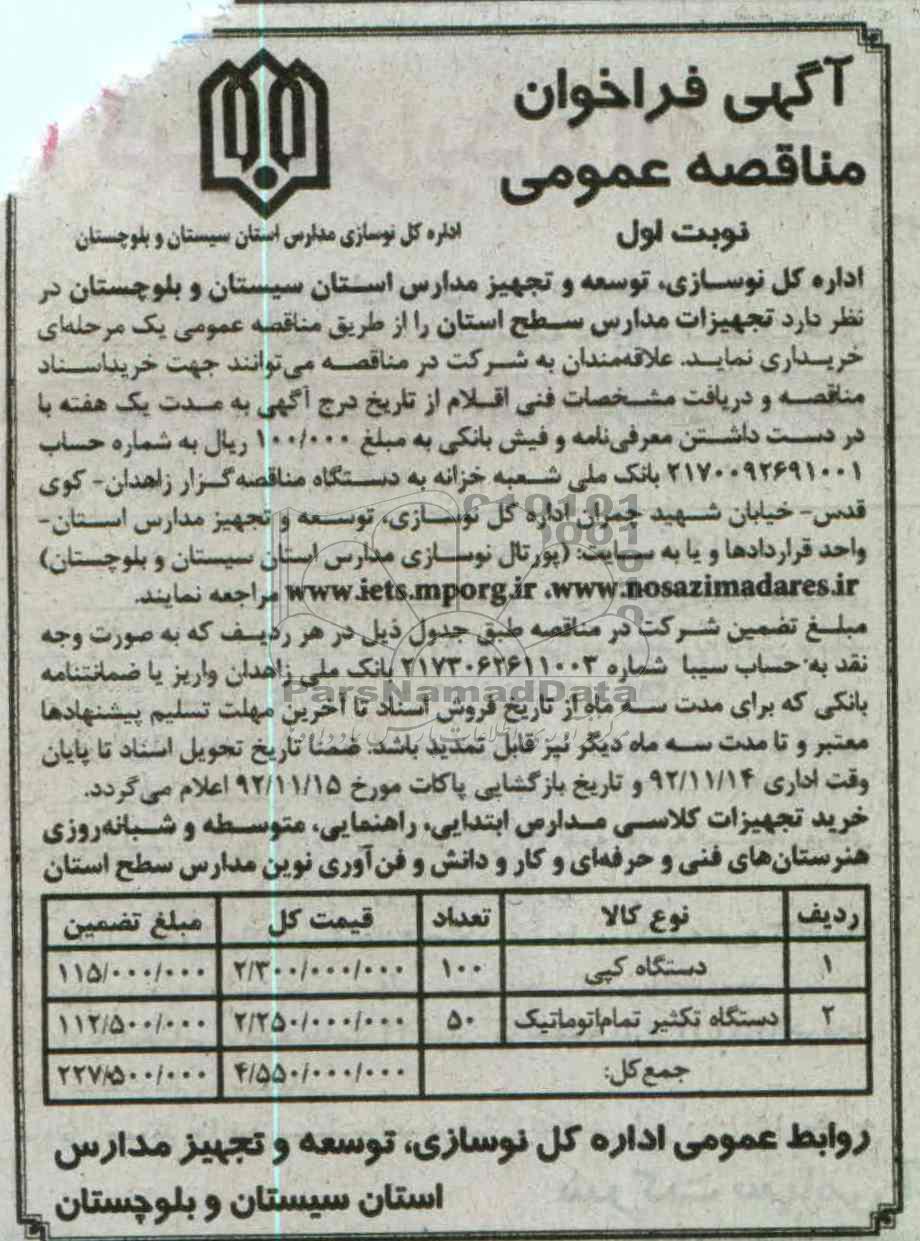 آگهی فراخوان
مناقصه عمومی
نوبت اول
اداره کل نوسازی مدارس استان سیستان و بلوچستان
اداره کل نوسازی، توسعه و تجهیز مدارس استان سیستان و بلوچستان در
نظر دارد تجهیزات مدارس سطح استان را از طریق مناقصه عمومی یک مرحله‌ای
خریداری نماید. علاقه‌مندان به شرکت در مناقصه می‌توانند جهت خریداسناد
مناقصه و دریافت مشخصات فنی اقلام از تاریخ درج آگهی به مدت یک هفته با
در دست داشتن معرفی‌نامه و فیش بانکی به مبلغ ۱۰۰/۰۰۰ ریال به شماره حساب
۲۱۷۰۰۹۲۶۹۱۰۰۱ بانک ملی شعبه خزانه به دستگاه مناقصه‌گزار زاهدان- کوی
قدس- خیابان شهید چمران اداره کل نوسازی، توسعه و تجهیز مدارس استان-
واحد قراردادها و یا به سایت: (پورتال نوسازی مدارس استان سیستان و بلوچستان)
www.iets.mporg.ir ،www.nosazimadares.ir مراجعه نمایند.
مبلغ تضمین شرکت در مناقصه طبق جدول ذیل در هر ردیف که به صورت وجه
نقد به حساب سیبا شماره ۲۱۷۳۰۶۲۶۱۱۰۰۳ بانک ملی زاهدان واریز یا ضمانتنامه
بانکی که برای مدت سه ماه از تاریخ فروش اسناد تا آخرین مهلت تسلیم پیشنهادها
معتبر و تا مدت سه ماه دیگر نیز قابل تمدید باشد. ضمنا تاریخ تحویل اسناد تا پایان
وقت اداری ۹۲/۱۱/۱۴ و تاریخ بازگشایی پاکات مورخ ۹۲/۱۱/۱۵ اعلام می‌گردد.
خرید تجهیزات کلاسی مدارس ابتدایی، راهنمایی، متوسطه و شبانه‌روزی
هنرستان‌های فنی و حرفه‌ای و کار و دانش و فن‌آوری نوین مدارس سطح استان
ردیف نوع کالا تعداد قیمت کل مبلغ تضمین
۱ دستگاه کپی ۱۰۰ ۲/۳۰۰/۰۰۰/۰۰۰ ۱۱۵/۰۰۰/۰۰۰
۲ دستگاه تکثیر تمام‌اتوماتیک ۵۰ ۲/۲۵۰/۰۰۰/۰۰۰ ۱۱۲/۵۰۰/۰۰۰
جمع کل: ۴/۵۵۰/۰۰۰/۰۰۰ ۲۲۷/۵۰۰/۰۰۰
روابط عمومی اداره کل نوسازی، توسعه و تجهیز مدارس
استان سیستان و بلوچستان
ParsNamadData